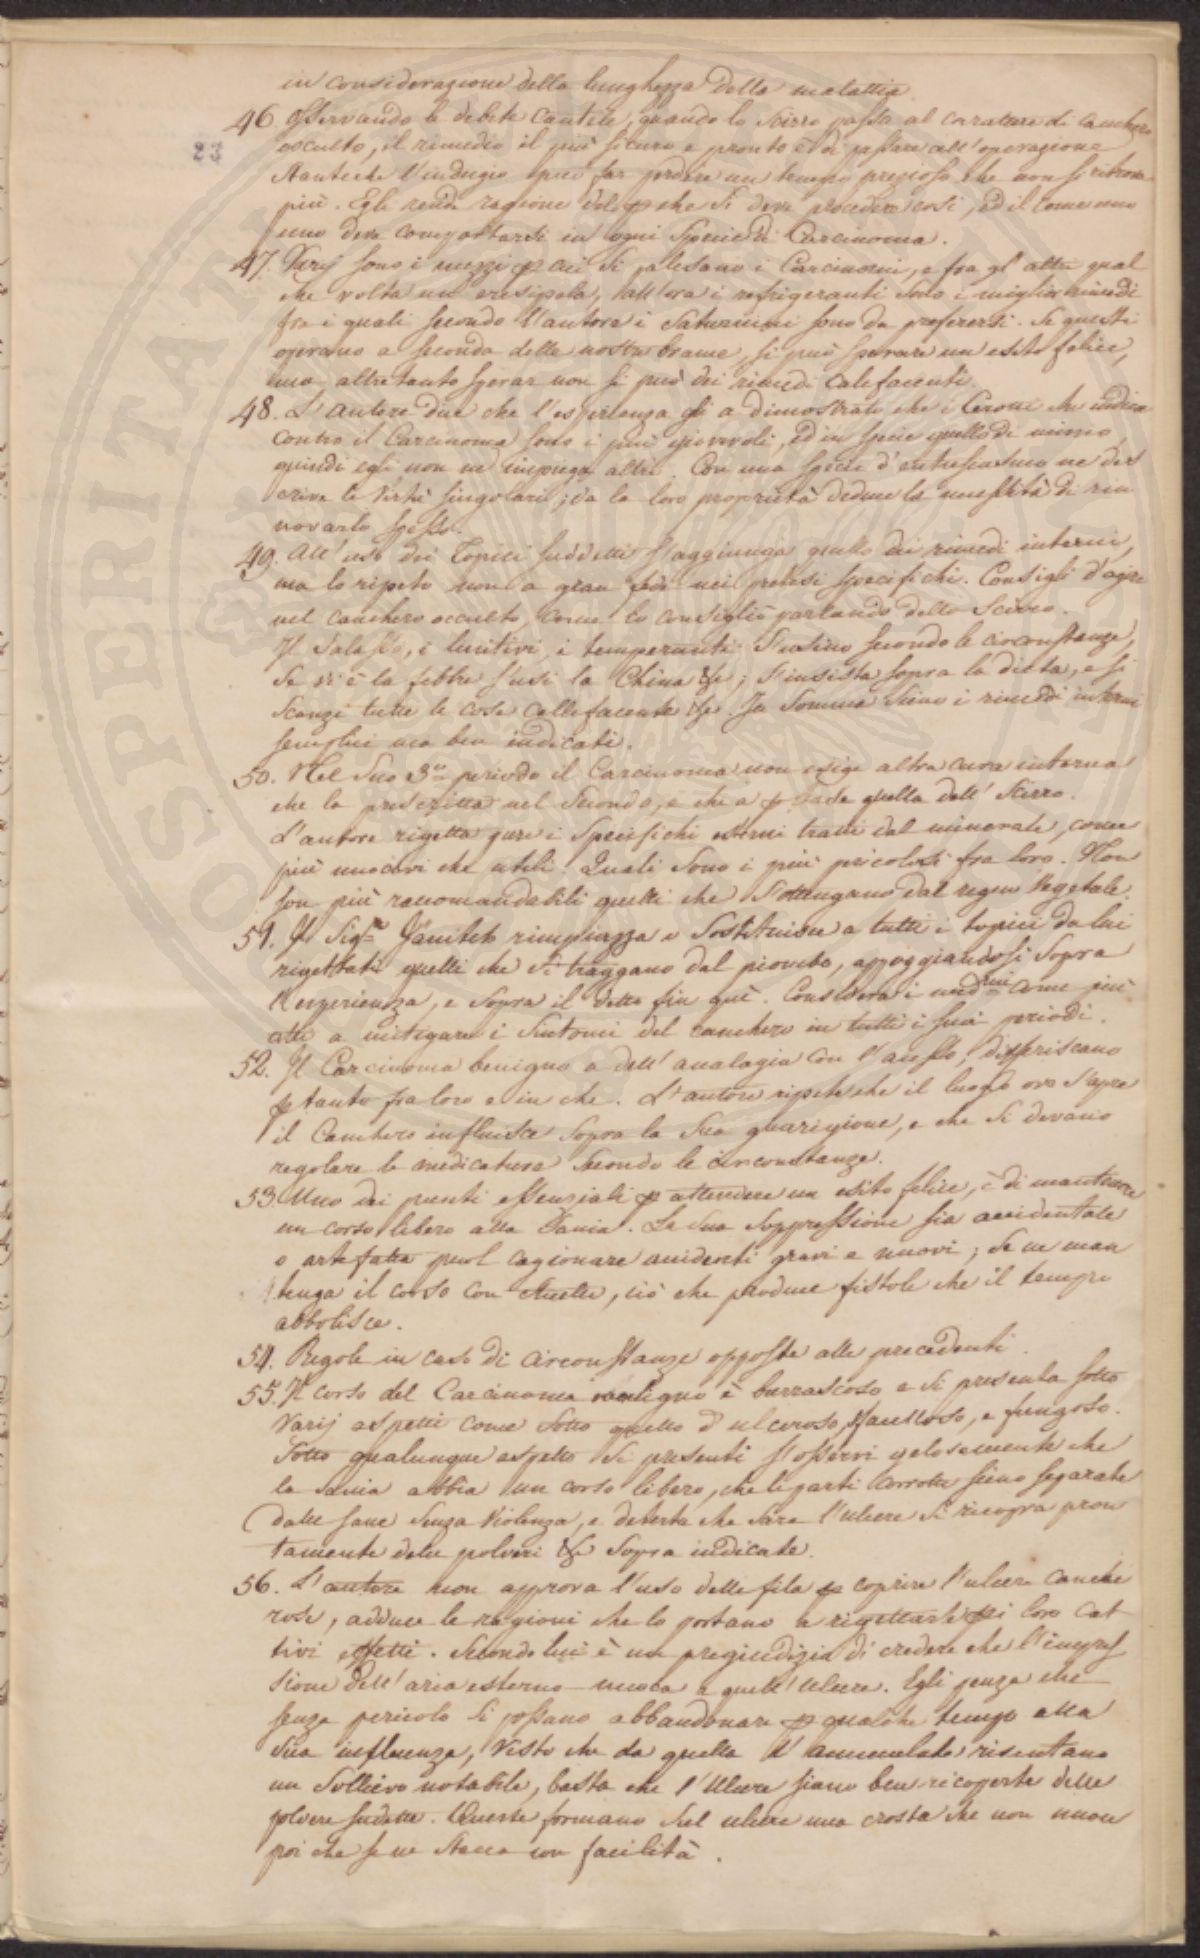 in considerazione della lunghezza della malattia
46 Osservando le debite cautele, quando lo Scirro passa al carattere di canchero
23
occulto, il rimedio il più sicuro e pronto è di passare all'operazione
stanteche l'indugio può far perdere un tempo prezioso che non si ritrova
più. Egli rende ragione del p che si deve procedere così, ed il come uno
uno deve comportarsi in ogni Specie di Carcinoma.
47. Varij sono i mezzi p cui si palesano i Carcinomi, e fra gl'altri qual
che volta un eresipola, tall'ora i refrigeranti sono i miglior rimedi
fra i quali secondo l'autore i Saturnini sono da preferersi. Se questi
operano a seconda delle nostre brame, si può sperare un esito felice,
ma altretanto sperar non si può dei rimedi calefacenti.
48. L'autore dice che l'esperienza gli a dimostrato che i Cerotti che indica
contro il Carcinoma sono i più giovevoli, ed in specie quello di minio,
quindi egli non ne impiega altri. Con una specie d'entusiasmo ne des
crive le virtù singolari; da le loro proprietà deduce la necessità di rin
novarlo spesso.
49. All'uso dei Topici suddetti s'aggiunga quello dei rimedi interni,
ma lo ripeto non a gran fede nei pretesi specifichi. Consigli d'agire
nel canchero occulto, come lo consigliò parlando dello Scirro.
Il Salasso, i lenitivi, i temperanti s'usino secondo le circonstanze,
se vi è la febbre s'usi la China &c; s'insista sopra la dieta, e si
scanzi tutte le cose callefacente &c. In somma sieno i rimedi interni
semplici ma ben indicati.
50. Nel suo 3.o periodo il Carcinoma non esige altra cura interna
che la prescritta nel secondo, e che a p base quella dell'Scirro.
L'autore rigetta pure i Specifichi esterni tratti dal minerale, come
più nuocivi che utili. Quali sono i più pricolosi fra loro. Non
son più raccomandabili quelli che s'ottengano dal regno Vegetale.
51. Il Sig.r rimpiazza e sostituisce a tutti i topici da lui
rigettati quelli che si traggano dal piombo, appoggiandosi sopra
l'esperienza, e sopra il detto fin quì. Considera i medmi come più
atti a mitigare i sintomi del canchero in tutti i suoi periodi.
52. Il Carcinoma benigno a dell'analagia con l'; differiscano
p tanto fra loro e in che. L'autore ripete che il luogo ove s'apre
il canchero influisce sopra la sua guarigione, e che si devano
regolare le medicature secondo le circonstanze.
53. Uno dei punti essenziali p attendere un esito felice, è di mantenere
un corso libero alla Sania. La sua soppressione sia accidentale
o artefatta puol cagionare accidenti gravi e nuovi; se ne man
tenga il corso con , ciò che produce fistole che il tempo
abbolisce.
54. Regole in caso di circonstanze opposte alle precedenti.
55. Il corso del Carcinoma maligno è burrascoso e si presenta sotto
Varij aspetti come sotto quello d'ulceroso, , e fungoso.
Sotto qualunque aspetto si presenti s'osservi gelosamente che
la Sania abbia un corso libero, che le parti corrotte sieno separate
dalle sane senza violenza, e deterta che sara l'ulcere si ricopra pron
tamente delle polveri &c sopra indicate.
56. L'autore non approva l'uso delle fila p coprire l'ulcere canche
rose, adduce le ragioni che lo portano a rigettarle pei loro cat
tivi effetti. Secondo lui è un pregiudizio di credere che l'impres
sione dell'aria esterna nuoca a quell'ulcere. Egli penza che
senza pericolo si possano abbandonare p qualche tempo alla
sua influenza, visto che da quella l'ammalato risentano
un sollievo notabile, basta che l'ulcere siano ben ricoperte delle
polvere sudette. Queste formano sul ulcere una crosta che non nuoce
poi che se ne stacca con facilità.